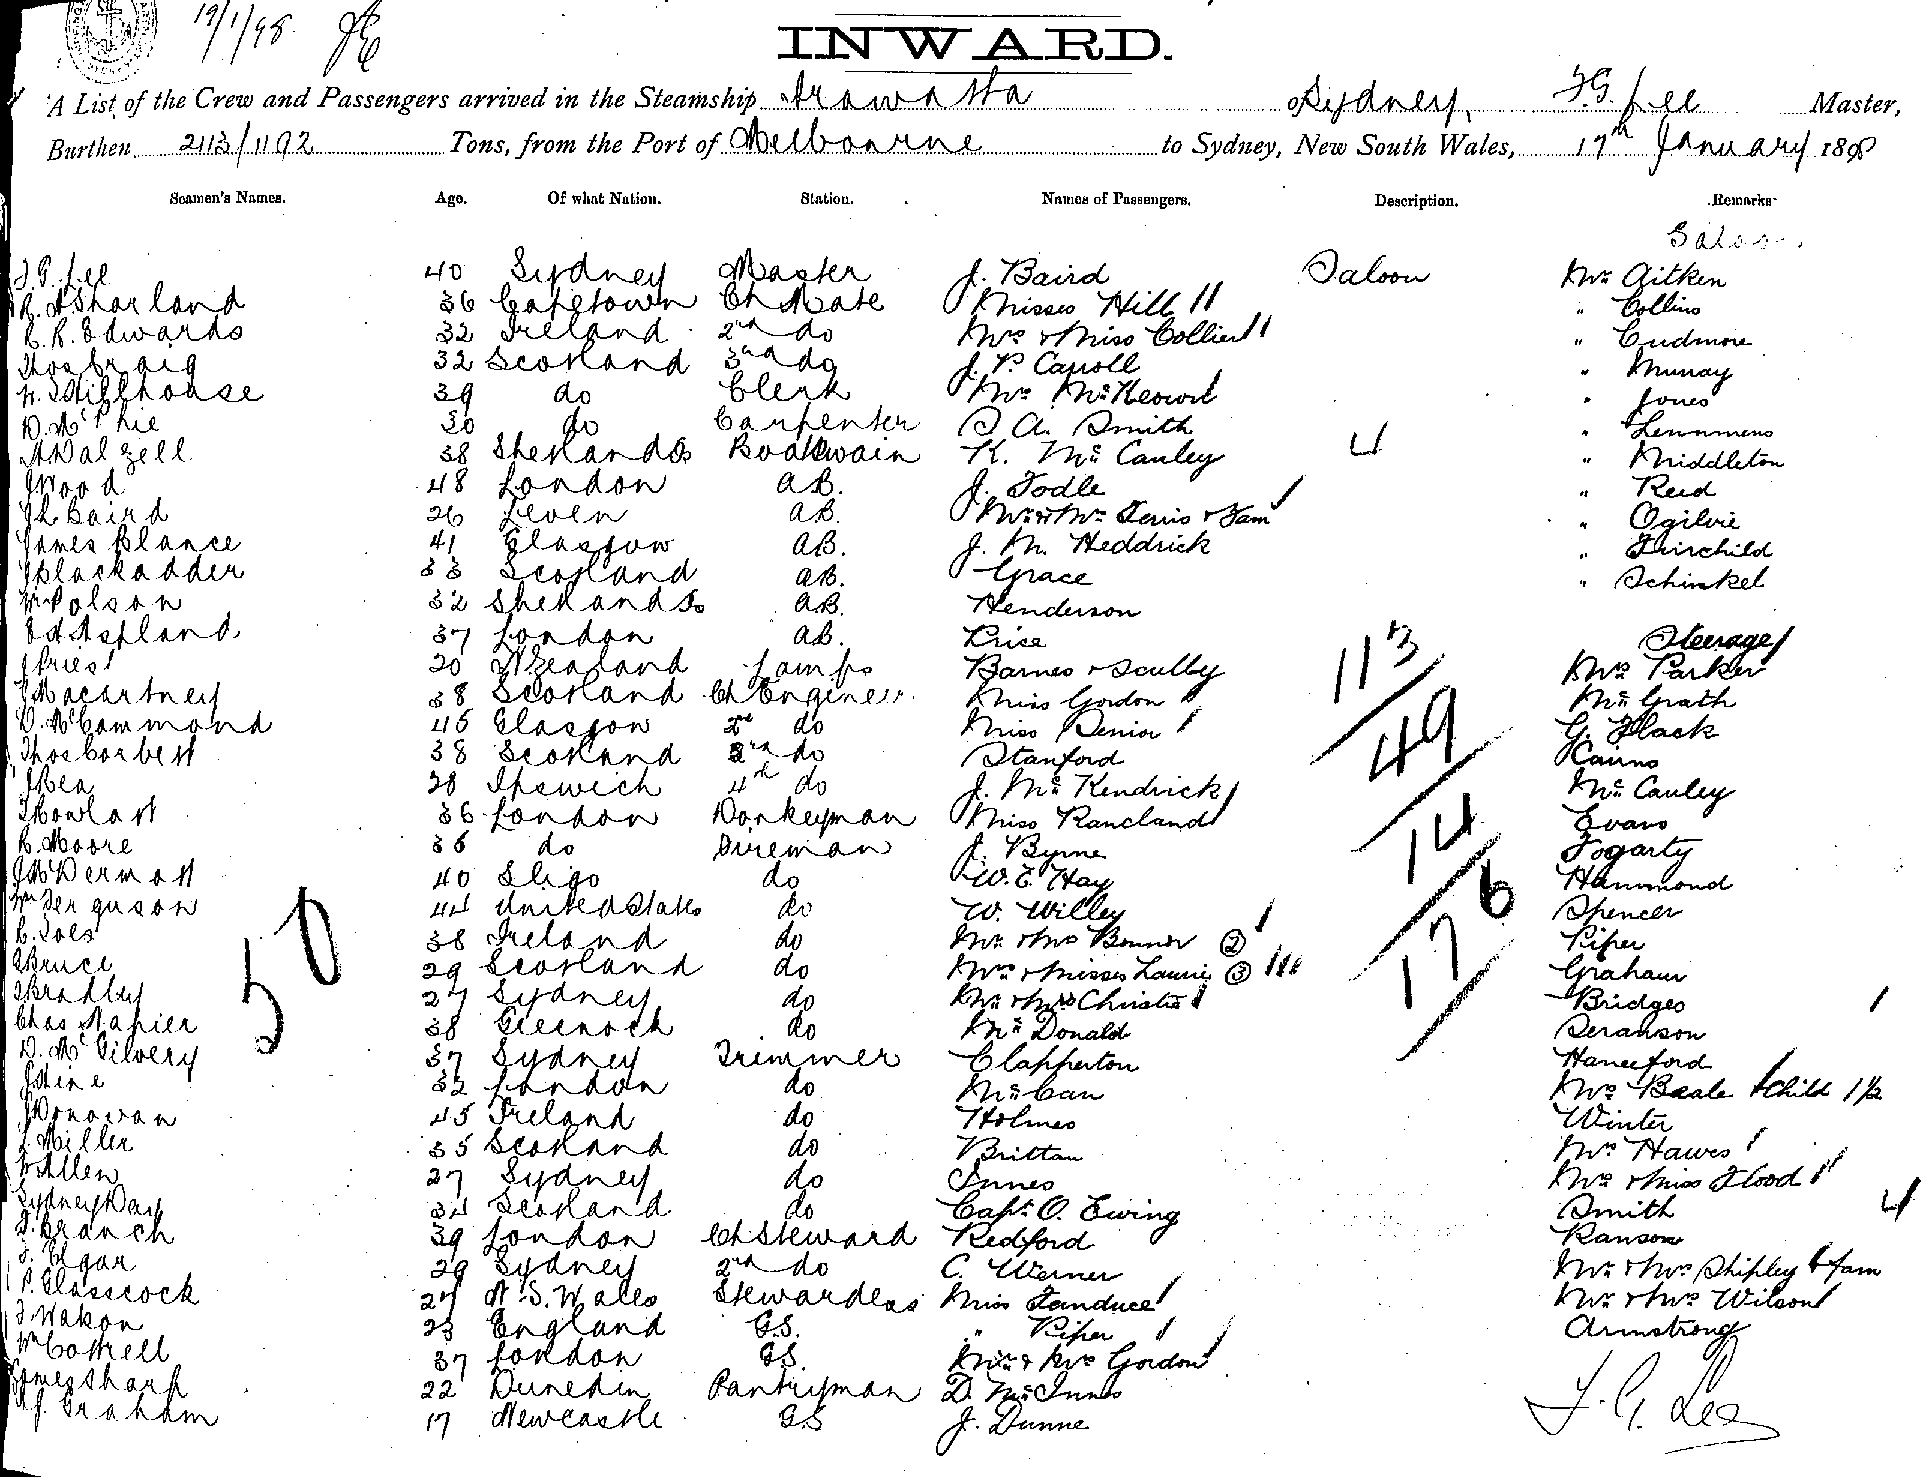 19/1/98
INWARD.
A List of the Crew and Passengers arrived in the Steamship Arawatta of Sydney, F.G. Lee Master,
Burthen 2113/1192 Tons, from the Port of Melbourne to Sydney, New South Wales, 17th January 1898
Seamen's Names. Age. Of what Nation. Station. Names of Passengers. Description. Remarks
Saloon
F. G. Lee 40 Sydney Master J. Baird Saloon Mr Aitken
Sharland 36 Capetown Ch Mate Misses Hill " Collins
C. R. Edwards 32 Ireland 2nd do Mrs & Miss Collier " Cudmore
Thos Craig 32 Scotland 3rd do J. P. Carroll " Murray
Hillhouse 39 do Clerk Mrs McKeown " Jones
D. McPhie 30 do Carpenter S A. Smith "
A Dalzell 38 Shetlands Boatswain K. McCauley 4 " Middleton
J Wood 48 London AB. J. Todle " Reid
J L Baird 26 Leven AB. Mr & Mrs & Fam " Ogilvie
James Blance 41 Glasgow AB. J. M. Heddrick " Fairchild
J Blackadder 33 Scotland AB. Grace " Schinkel
W Polson 32 Shetlands AB. Henderson
Aspland 37 London AB. Price Steerage
J Priest 20 N Zealand Lamps Barnes & Scully Mrs Parker
J Macartney 38 Scotland Ch Engineer Miss Gordon McGrath
D. McCammond 45 Glasgow 2nd do Miss Senior G. Flack
Thos Corbett 38 Scotland 3rd do Stanford Cairns
J Rea 28 Ipswich 4th do J. McKendrick McCauley
T Howlatt 36 London Donkeyman Miss Rancland Evans
C. Moore 36 do Fireman J. Byrne Fogarty
J McDermott 40 Sligo do W. E. Hay Hammond
Wm Ferguson 44 United States do W. Willey Spencer
38 Ireland do Mr & Mrs Bonner 2 Piper
Bruce 29 Scotland do Mrs & Misses Laurie 3 Graham
Bradley 27 Sydney do Mr & Mrs Christie Bridges
Chas Napier 38 Greenock do McDonald Seranson
D. McGilvery 37 Sydney Trimmer Clapperton
J Hine 32 London do McCan Mrs Beale & Child 1½
J Donovan 45 Ireland do Holmes Winter
J. Miller 35 Scotland do Brittan Mrs Hawes
W Allen 27 Sydney do Innes Mrs & Miss Flood
Sydney Day 34 Scotland do Capt. O. Ewing Smith 4
F. Branch 39 London Ch Steward Redford Ransom
F. Edgar 29 Sydney 2nd do C. Werner Mr & Mrs Shipley & fam
P. Glasscock 27 N. S. Wales Stewardess Miss Tanduce Mr & Mrs Wilson
F Wakon 23 England G.S. " Piper Armstrong
Wm Cottrell 37 London GS. Mr & Mrs Gordon
James Sharp 22 Dunedin Pantryman D. McInnes
Graham 17 Newcastle G.S J. Dunne
50
113
49
14
176
F. G. Lee